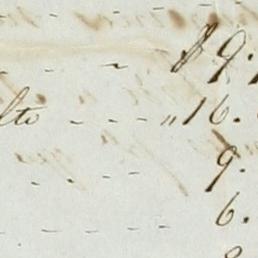 - - - $ 9.
lto - - - " 16.
- - 9.
- - - 6.